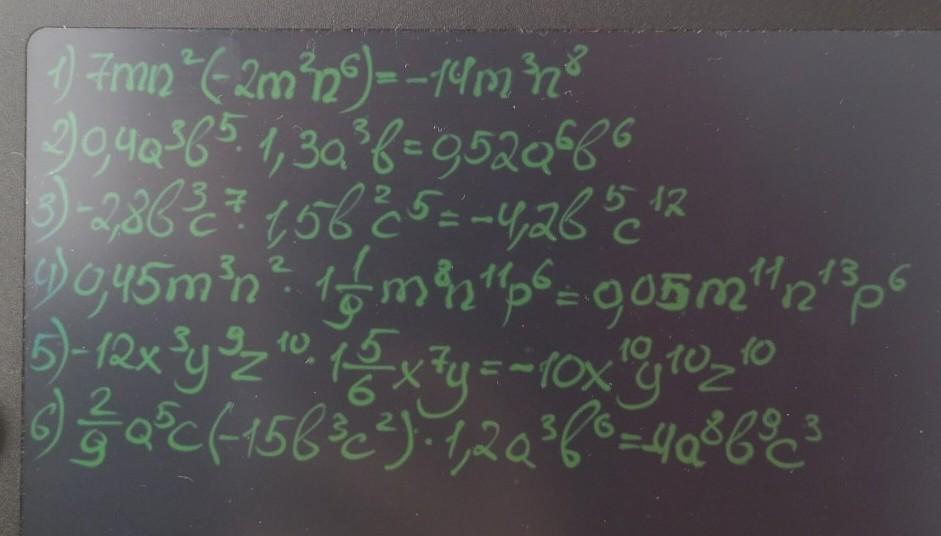 1) 7mn²(-2m²n⁶)=-14m³n⁸
2) 0,4a³b⁵ · 1,3a³b=0,52a⁶b⁶
3) -2,8b³c⁷ · 1,5b²c⁵=-4,2b⁵c¹²
4) 0,45m³n² · 1 1/9 m⁸n¹¹p⁶=0,05m¹¹n¹³p⁶
5) -12x³y⁹z¹⁰ · 1 5/6 x⁷y=-10x¹⁰y¹⁰z¹⁰
6) 2/9 a⁵c(-15b³c²) · 1,2a³b⁶=-4a⁸b⁹c³